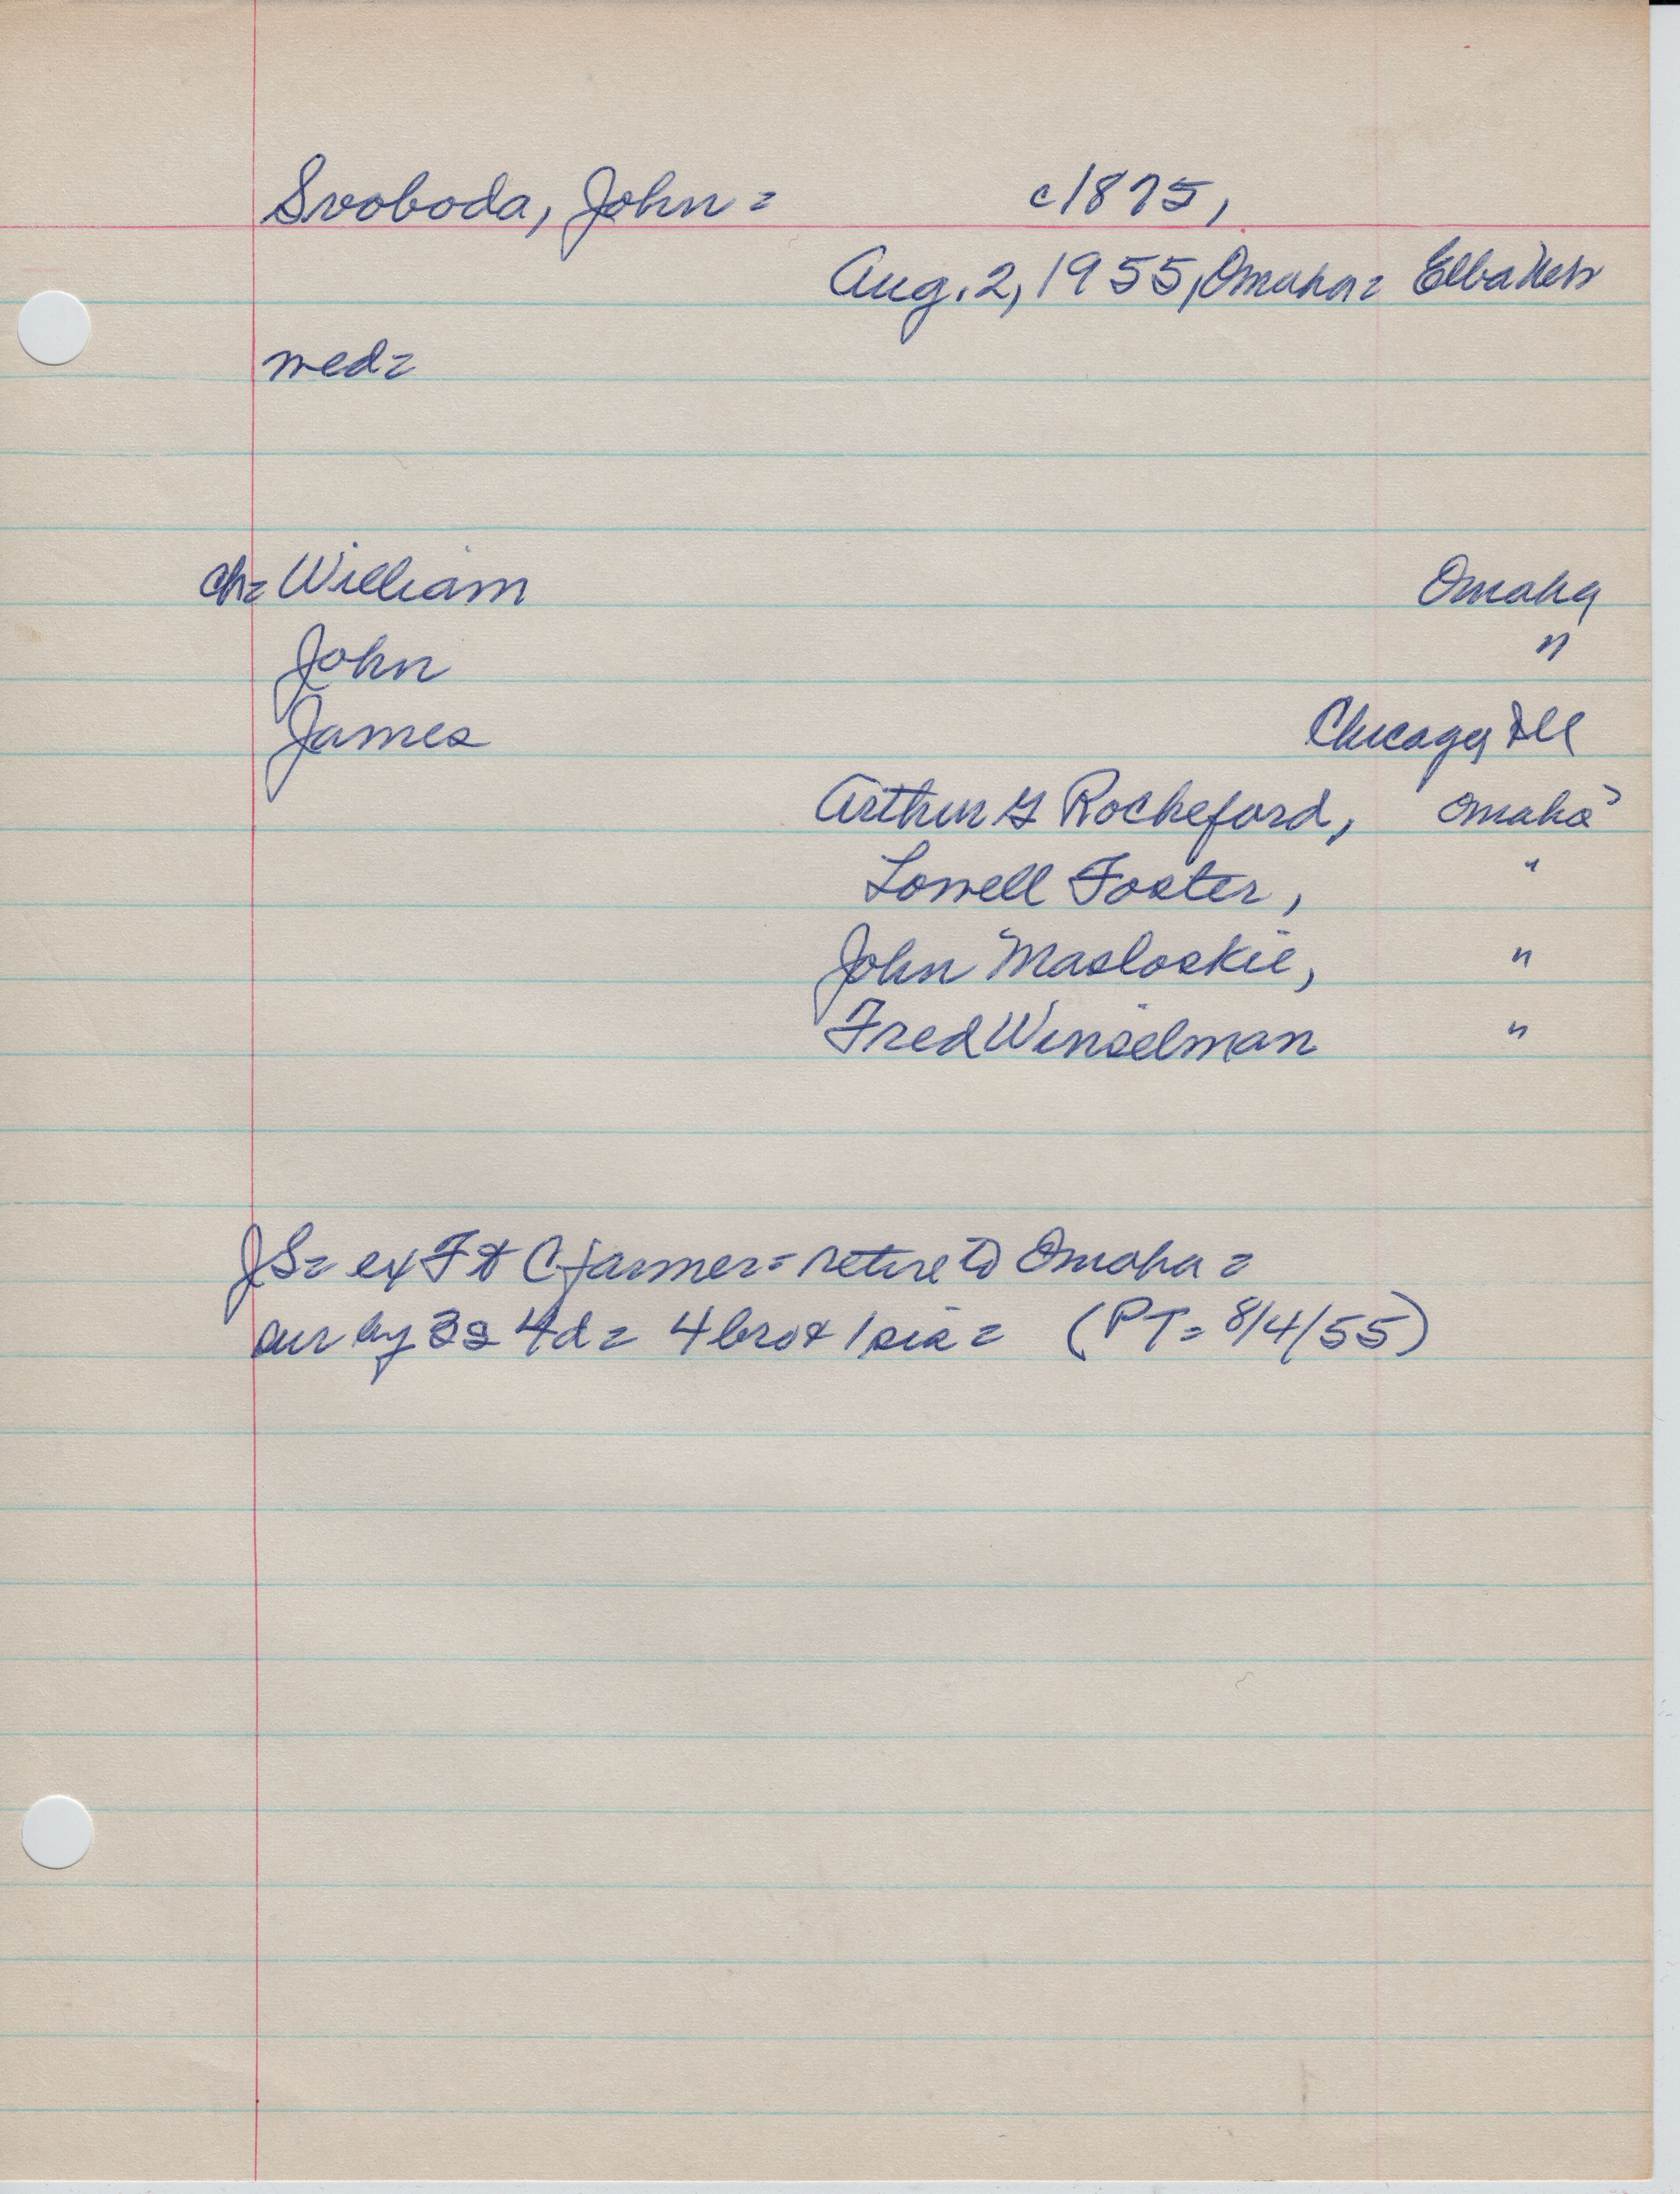 Svoboda, John = c1875,
Aug. 2, 1955, Omaha = Elba Nebr
med =
ch = William Omaha
John "
James Chicago Ill
Arthur G Rocheford, Omaha
Lowell Foster, "
John Masloskie, "
Fred Winselman "
JS = ex F & C farmer = retire to Omaha =
sur by 3s 4d = 4 bro & 1 sis = (PT = 8/4/55)